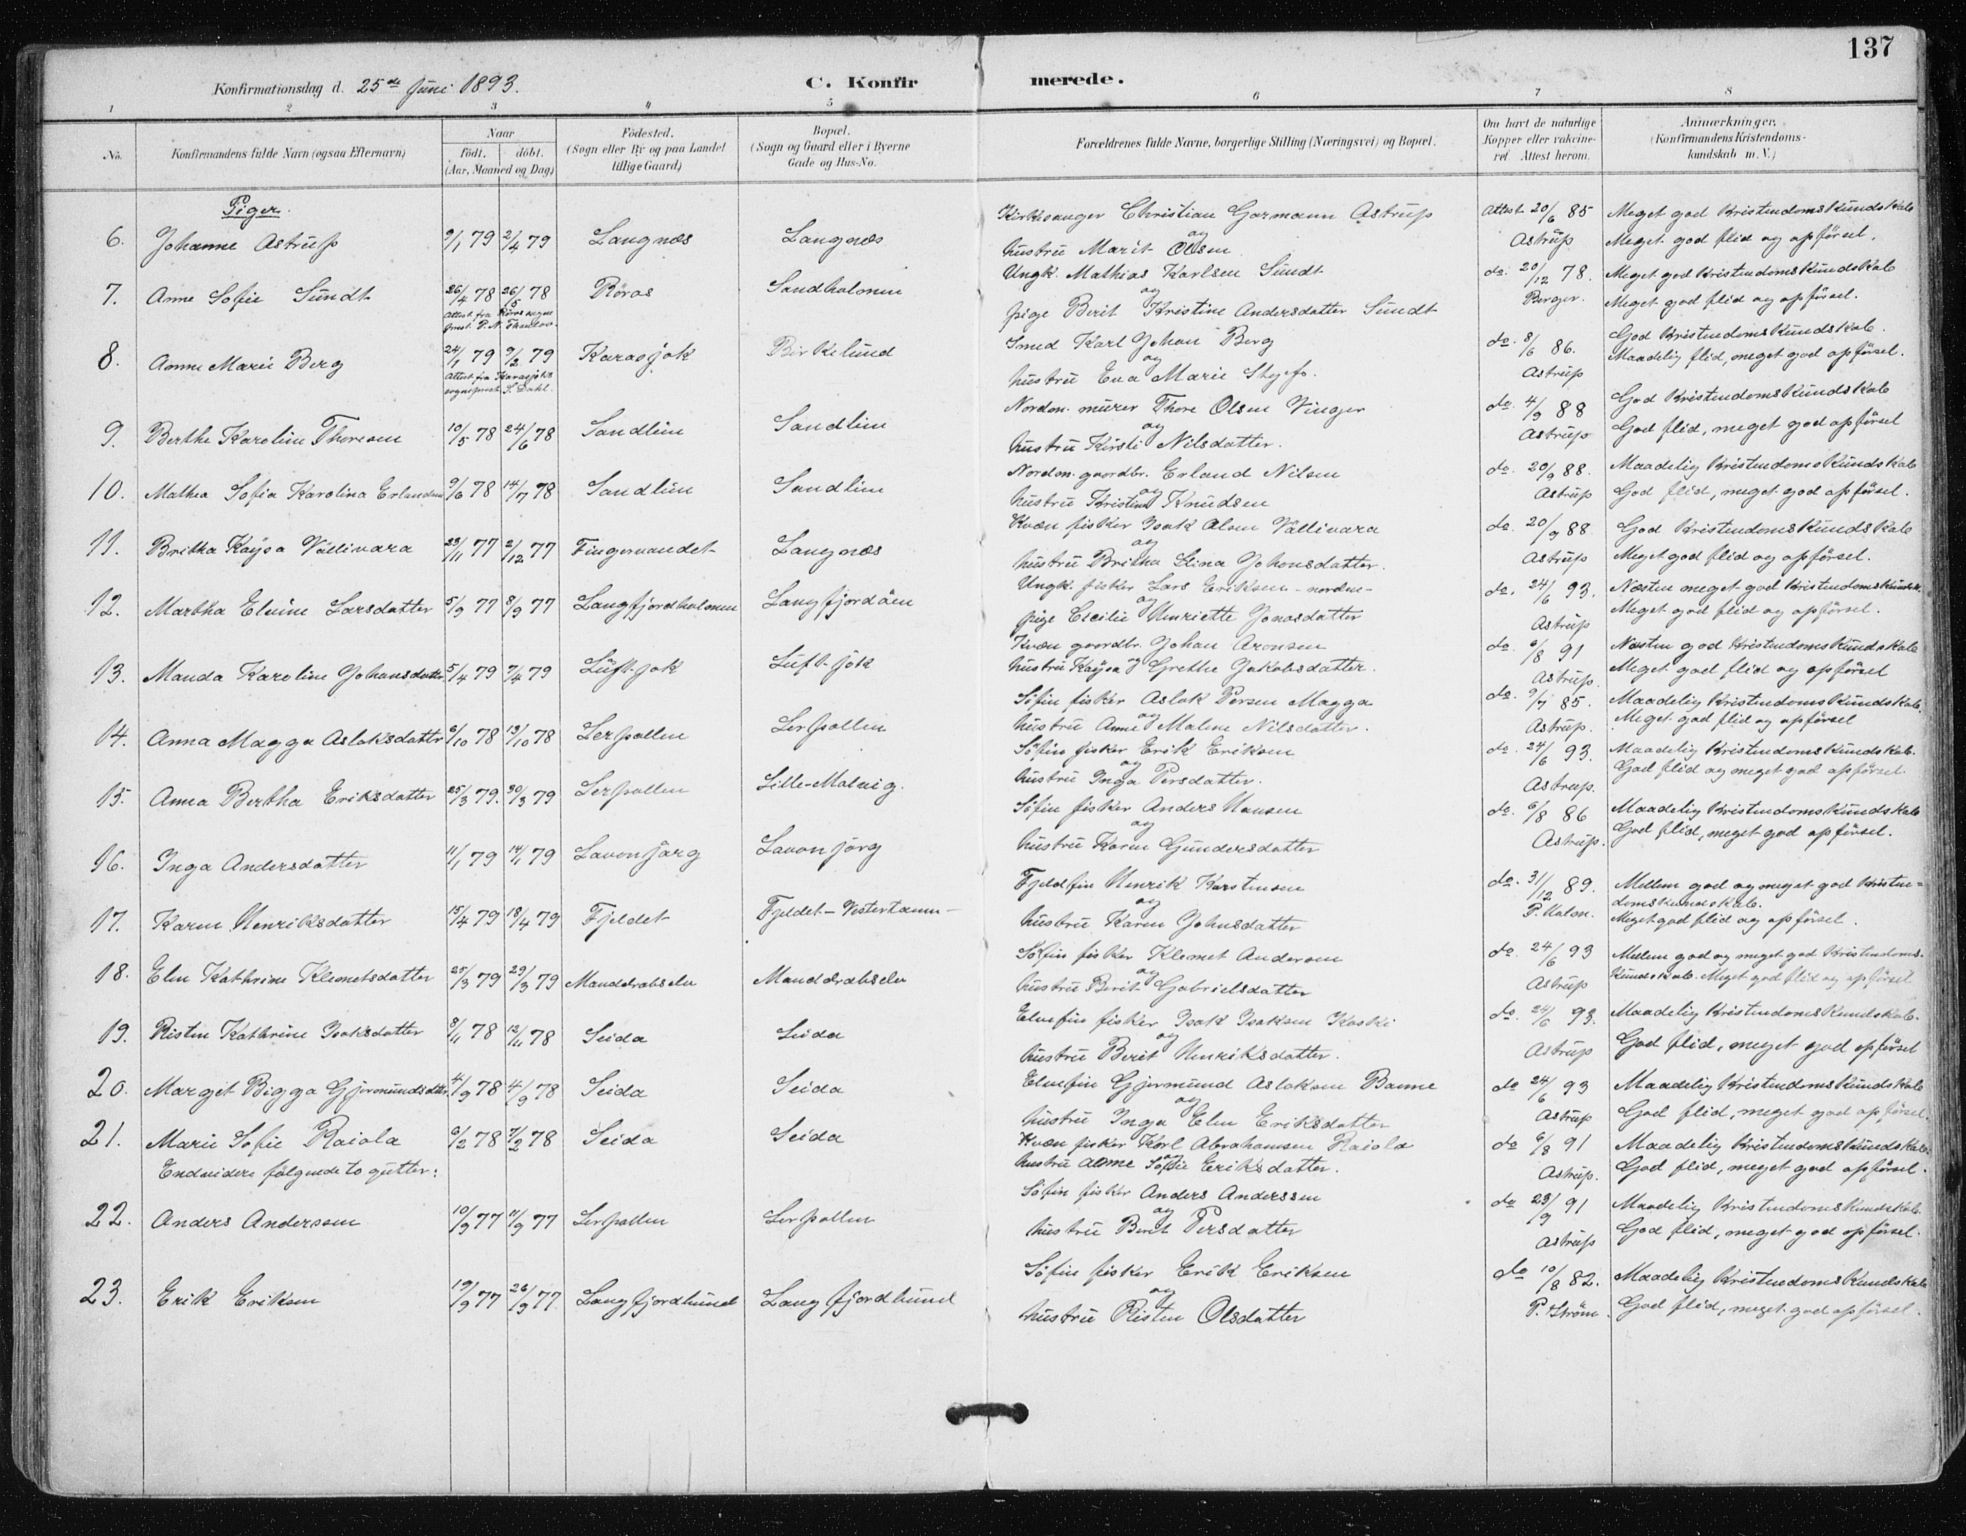 137
Konfirmationsdag d. 25de Juni 1893.
C. Konfirmerede.
1 2 3 4 5 6 7 8
No.
Konfirmandens fulde Navn (ogsaa Efternavn)
Naar
födt. döbt.
(Aar, Maaned og Dag)
Födested.
(Sogn eller By og paa Landet
tillige Gaard)
Bopæl.
(Sogn og Gaard eller i Byerne
Gade og Hus-No.
Forældrenes fulde Navne, borgerlige Stilling (Næringsvei) og Bopæl.
Om havt de naturlige
Kopper eller vakcine-
ret. Attest herom.
Anmærkninger.
(Konfirmandens Kristendoms-
kundskab m. V.)
Piger.
6. Johanne Astrup 9/1 79 2/4 79 Langnæs Langnæs
Kirkesanger Christian Gormann Astrup
og
hustru Marit Olsen
Attest 20/6 85
Astrup
Meget god Kristendomskundskab
Meget god flid og opförsel.
7. Anne Sofie Sundt 26/4 78 26/5 78 Röros Sandholmen
Attest fra Röros sogne
prest P. N.
Ungk. Mathias Karlsen Sundt
og
pige Berit Kristine Andersdatter Sundt
do. 20/12 78.
Berger.
Meget god Kristendomskundskab
Meget god flid og opförsel.
8. Anne Marie Berg 24/1 79 9/2 79 Karasjok Birkelund
Attest fra Karasjoks
sogneprest S. Dahl.
Smed Karl Johan Berg
og
hustru Eva Marie
do. 8/6 86.
Astrup
God Kristendomskundskab.
Maadelig flid, meget god opförsel.
9. Berthe Karoline Thoresen 10/5 78 24/6 78 Sandlien Sandlien
Nordm. murer Thore Olsen Vinger
og
hustru Kirsti Nilsdatter.
do. 4/9 88
Astrup
God Kristendomskundskab
God flid, meget god opförsel
10. Mathea Sofia Karolina Erlandsen 9/6 78 14/7 78 Sandlien Sandlien
Nordm. gaardbr. Erland Nilsen
og
hustru Kristine Knudsen
do. 20/9 88.
Astrup
Maadelig Kristendomskundskab
God flid, meget god opförsel.
11. Britha Kaysa Vällivara 29/11 77 2/12 77 Fingervandet Langnæs
Kvæn fisker Isak Olsen Vällivara
og
hustru Britha Stina Johansdatter.
do. 20/9 88
Astrup
God Kristendomskundskab
Meget god flid og opförsel.
12. Martha Elvine Larsdatter 5/9 77 8/9 77 Langfjordholmen Langfjordöen
Ungk. fisker Lars Eriksen - nordm-
og
pige Cecilie Henriette Jonasdatter
do. 24/6 93.
Astrup
Næsten meget god Kristendomskundsk.
Meget god flid og opförsel.
13. Manda Karoline Johansdatter 5/4 79 7/4 79 Luftjok Luftjok
Kvæn gaardbr. Johan Aronsen
og
hustru Kaysa Grethe Jakobsdatter.
do. 6/8 91
Astrup.
Næsten god Kristendomskundskab
Meget god flid og opförsel
14. Anna Magga Aslaksdatter 6/10 78 13/10 78 Lerpollen Lerpollen
Söfin fisker Aslak Persen Magga
og
hustru Anne Malene Nilsdatter.
do. 9/7 85.
Astrup.
Maadelig Kristendomskundskab.
Meget god flid og opförsel
15. Anna Bertha Eriksdatter 25/3 79. 30/3 79 Lerpollen Lille-Molvig.
Söfin fisker Erik Eriksen
og
hustru Inga Persdatter.
do. 24/6 93.
Astrup.
Maadelig Kristendomskundskab.
God flid og meget god opförsel.
16. Inga Andersdatter 11/1 79 14/1 79 Lavonjarg Lavonjarg
Söfin fisker Anders Hansen
og
hustru Karen Gundersdatter
do. 6/8 86
Astrup.
Maadelig Kristendomskundskab
God flid, meget god opförsel.
17. Karen Henriksdatter 15/4 79 18/4 79 Fjeldet Fjeldet - Vestertanen-
Fjeldfin Henrik Karstensen
og
hustru Karen Johnsdatter
do. 31/12 89.
P. Holm.
Mellem god og meget god Kristen=
domskundskab.
Meget god flid og opförsel.
18. Elen Kathrine Klemetsdatter 25/3 79 29/3 79 Manddrabselv Manddrabselv
Söfin fisker Klemet Andersen
og
hustru Berit Gabrielsdatter
do. 24/6 93
Astrup
Mellem god og meget god Kristendoms-
kundskab. Meget god flid og opförsel
19. Risten Kathrine Isaksdatter 8/11 78 12/11 78 Seida Seida
Elvefin fisker Isak Isaksen Koski
og
hustru Berit Henriksdatter.
do. 24/6 93.
Astrup
Maadelig Kristendomskundskab.
God flid, meget god opförsel
20. Margit Bigga Gjermundsdatter 4/9 78 4/9 78 Seida Seida
Elvefin Gjermund Aslaksen Banne
og
hustru Inga Elen Eriksdatter
do 24/6 93
Astrup
Maadelig Kristendomskundskab
God flid, meget god opförsel.
21. Marie Sofie Raiola 6/2 78 7/2 78 Seida Seida
Kvæn fisker Karl Abrahamsen Raiola
og
hustru Anne Sofie Eriksdatter.
do 6/8 91
Astrup.
Maadelig Kristendomskundskab
God flid, meget god opförsel.
Endvidere følgende to gutter:
22. Anders Anderssen 10/9 77 11/9 77 Lerpollen Lerpollen
Söfin fisker Anders Anderssen
og
hustru Berit Persdatter
do 23/9 91
Astrup
Maadelig Kristendomskundskab
God flid, meget god opförsel.
23. Erik Eriksen 19/9 77 26/9 77. Langfjordbund Langfjordbund
Söfin fisker Erik Eriksen
og
hustru Risten Olsdatter
do 10/8 82.
P. Ström.
Maadelig Kristendomskundskab
God flid, meget god opförsel.